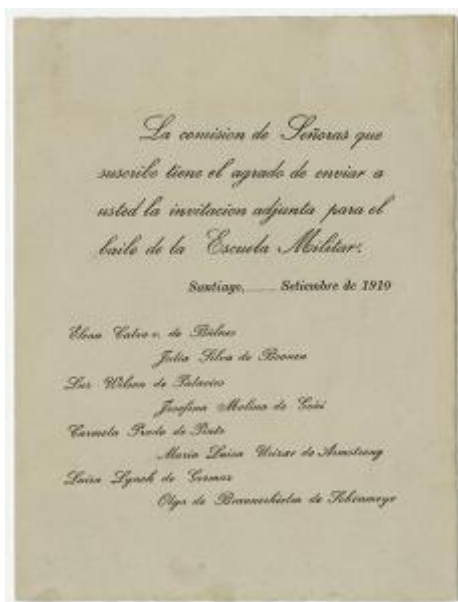 La comision de Señoras que
suscribe tiene el agrado de enviar a
usted la invitacion adjunta para el
baile de la Escuela Militar.
Santiago, ...... Setiembre de 1910
Elena Calvo v. de Búlnes
Julia Silva de Boonen
Luz Wilson de Palacios
Josefina Molina de Goñi
Carmela Prado de Pinto
Maria Luisa Urizar de Armstrong
Luisa Lynch de Gormaz
Olga de